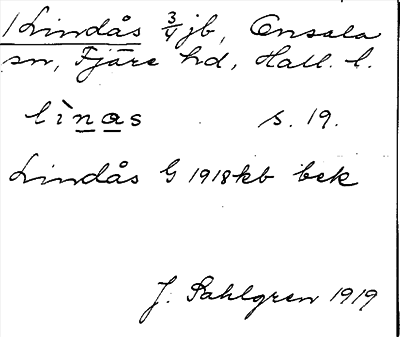 /Lindås 3/4 jb, Onsala
sn, Fjäre hd, Hall. l.
lìnas s. 19.
Lindås G 1918 kb bek
J. Sahlgren 1919